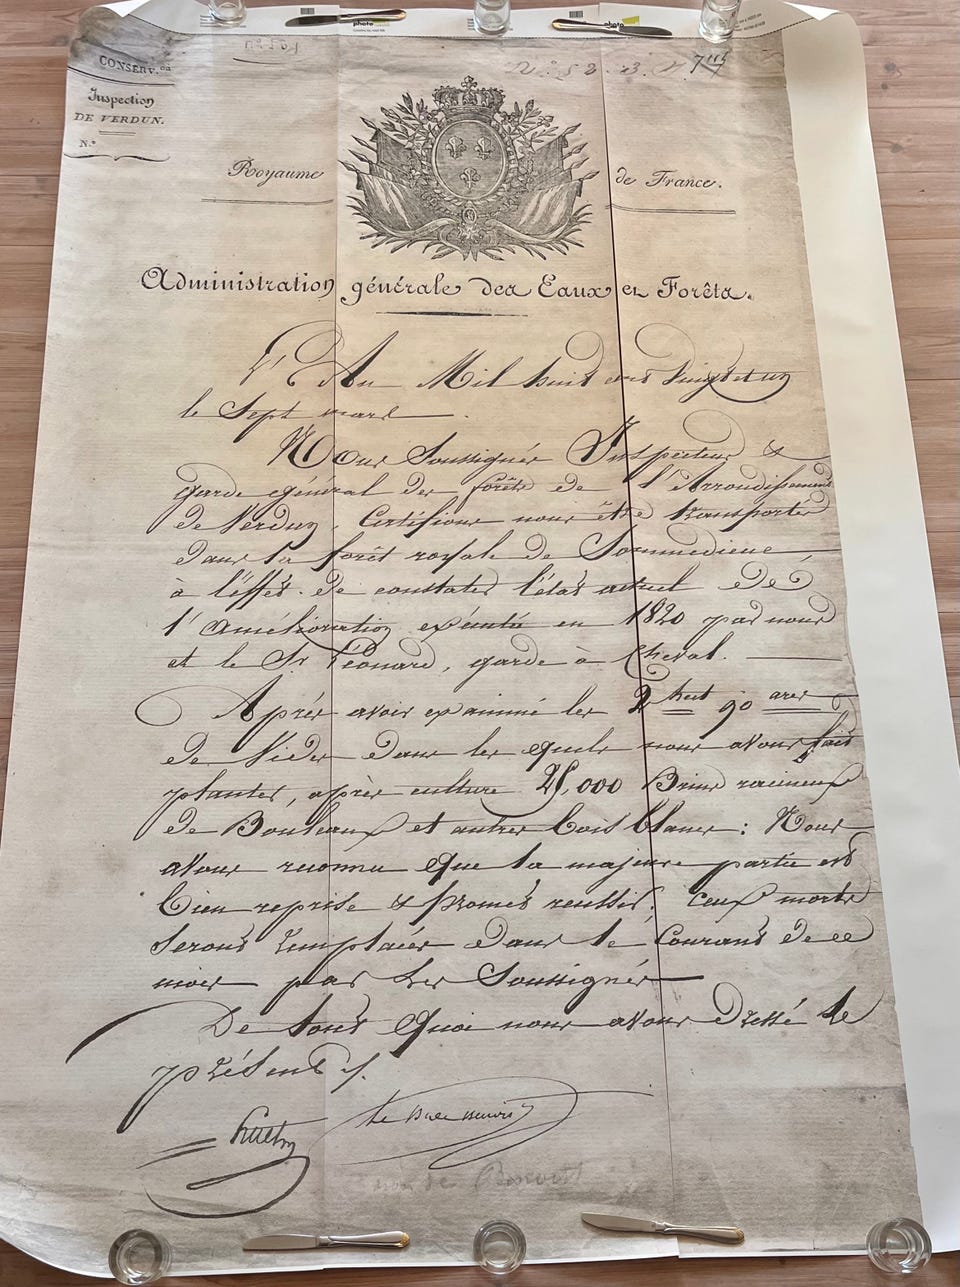 photo
photo
CONSERV.on
Inspection
DE VERDUN.
N.o
Royaume de France.
Administration générale des Eaux et Forêts.
L'An Mil huit cent Vingt et un
le Sept mars
Nous Soussignés Inspecteur &
garde général des forêts de l'Arrondissement
de Verdun, Certifions nous être transportés
dans la forêt royale de Sommedieue,
à l'effet de constater l'état actuel de
l'Amélioration exécutée en 1820 par nous
et le Sr Léonard, garde à Cheval.
Après avoir examiné les 2 hect 90 ares
de Vides dans lesquels nous avons fait
planter, après culture 25,000 Brins racineux
de Bouleaux et autres bois blancs: Nous
avons reconnu que la majeure partie est
bien reprise & promet réussite. Ceux morts
seront remplacés dans le Courant de ce
mois par les Soussignés
De tout quoi nous avons dressé le
présent